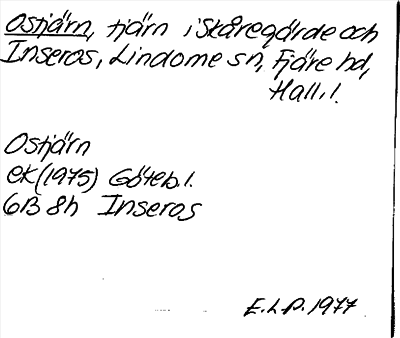 Ostjärn, tjärn i Skåregärde och
Inseros, Lindome sn, Fjäre hd,
Hall. l.
Ostjärn
ek (1975) Göteb. l.
6B 8h Inseros
E.L.P. 1977